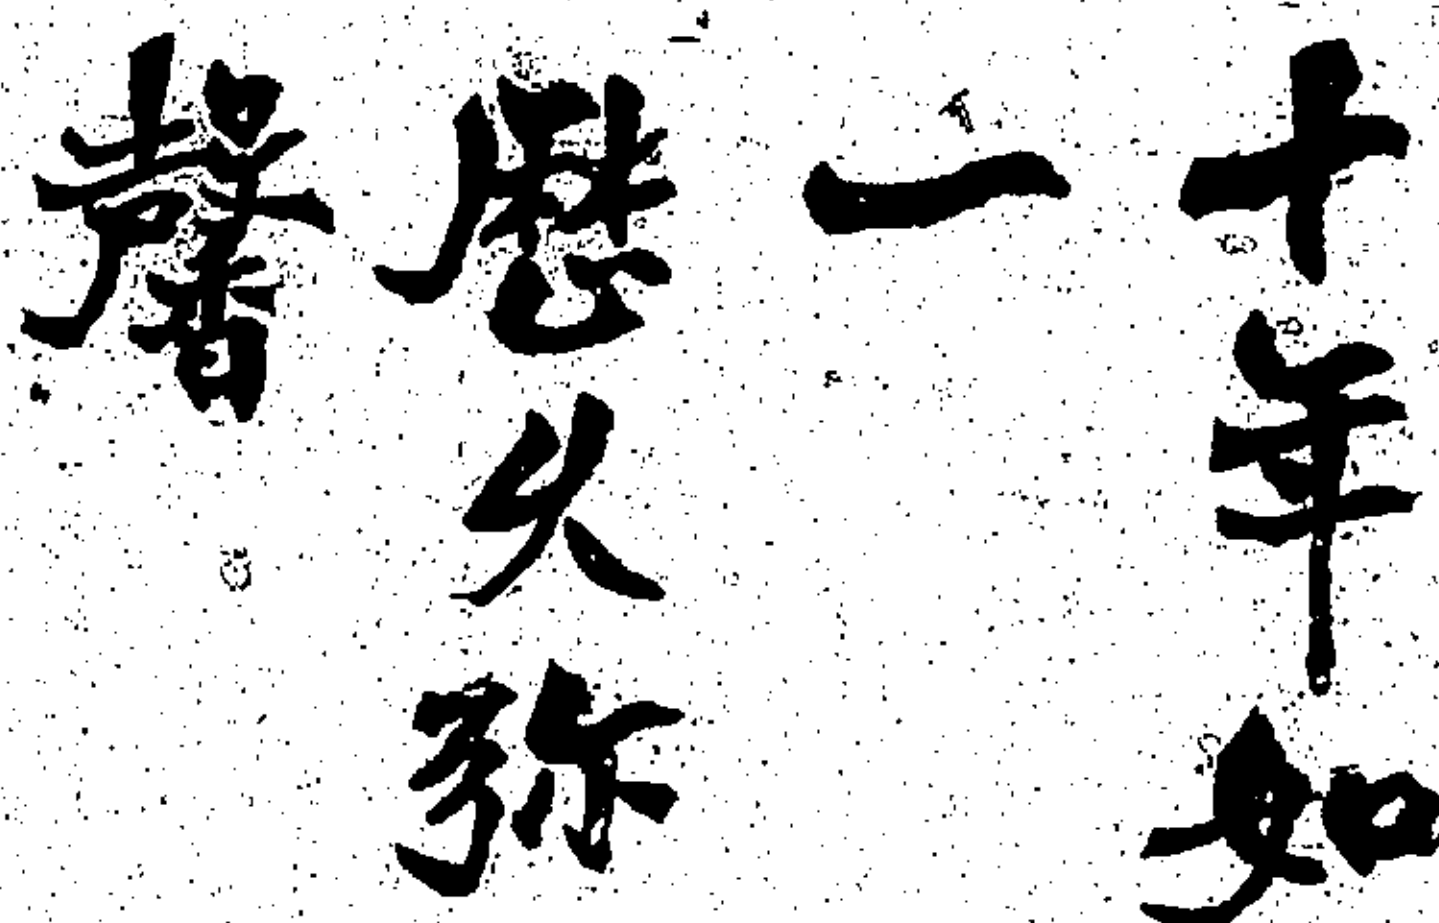 十年如
一
歷久弥
馨